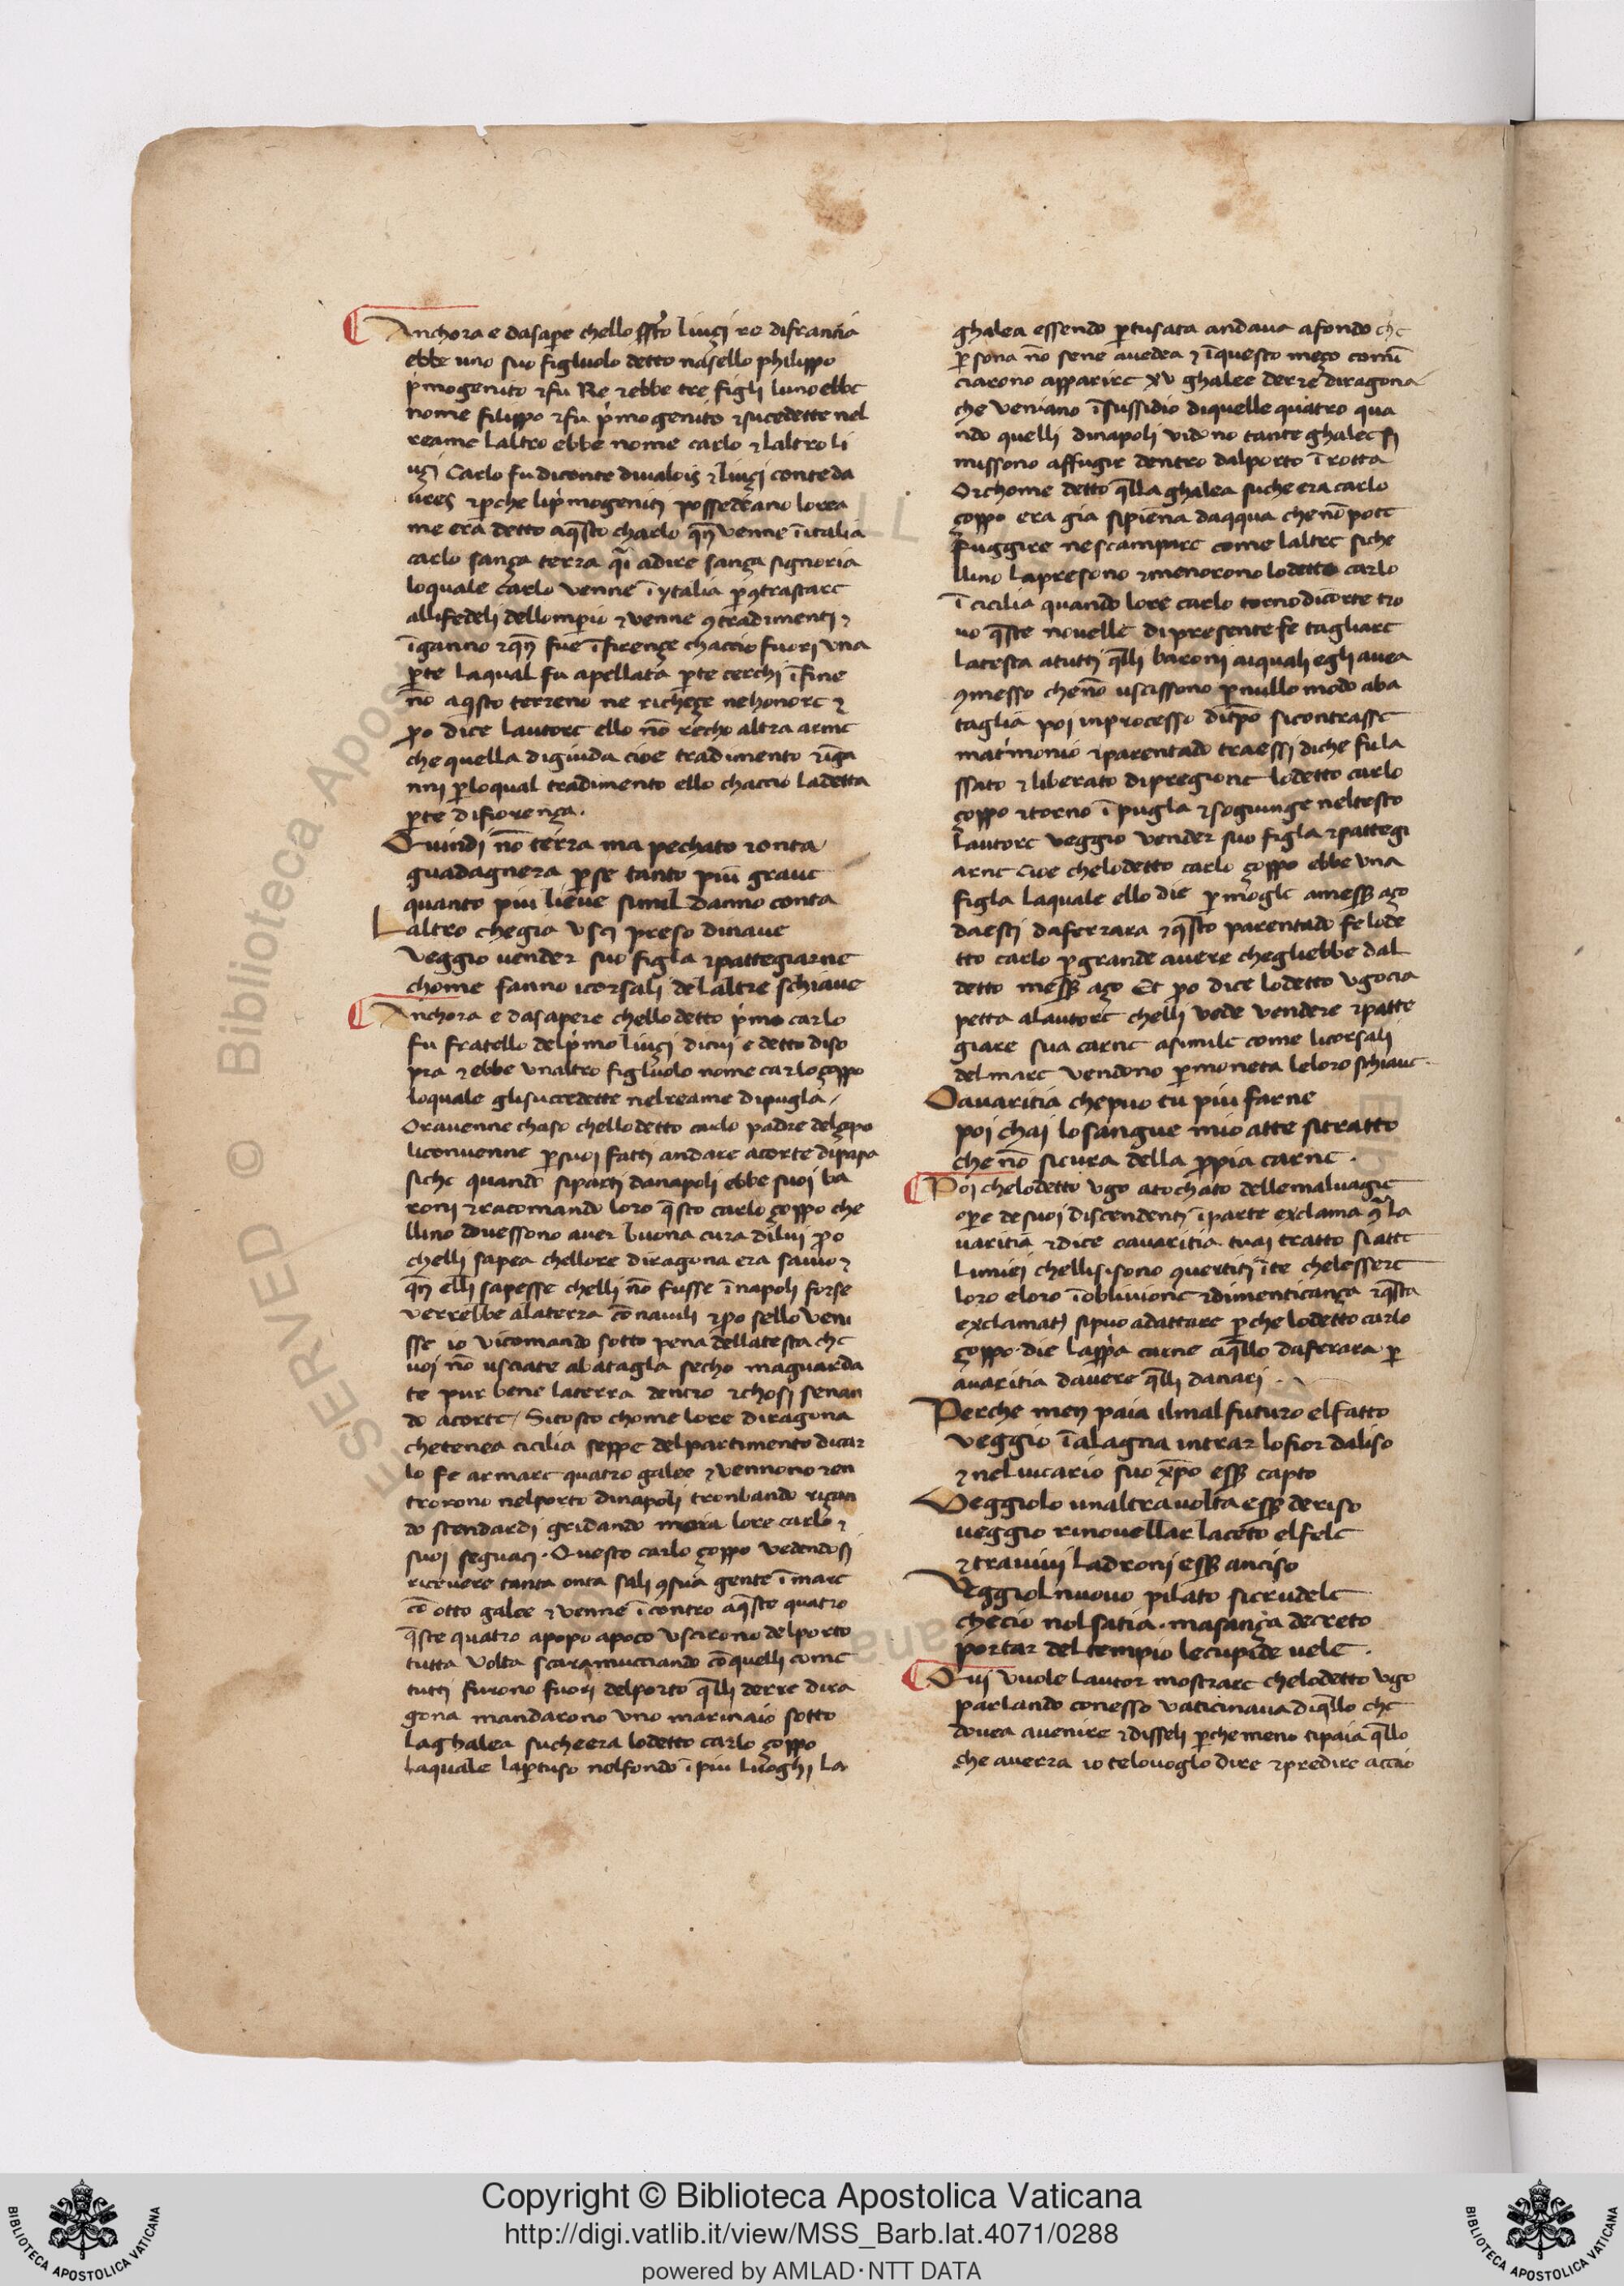 Anchora e dasapere chello sc̄to luigi re difrancia
ebbe uno suo figluolo detto nasello philippo
p̄mogenito ⁊fu Re ⁊ebbe tre figli luno ebbe
nome filippo ⁊fu p̄mogenito ⁊sucedette nel
reame laltro ebbe nome carlo ⁊ laltro li
ugi Carlo fu diconte diualois ⁊luigi conte da
ures ⁊ꝑche lip̄mogeniti possedeano lorea
me era detto aq̄sto charlo qn̄ venne ī italia
carlo sança terra q̄i adire sança signoria
loquale carlo venne ī ytalia ꝑ ꝯtrastare
allifedeli dellomperio ⁊ venne ꝯtradimenti ⁊
īganno ⁊qn̄ fue ī firençe chaccio fuori vna
ꝑte laqual fu apellata ꝑte cerchi ī fine
nō aq̄sto terreno ne richeçe nehonore ⁊
ꝑo dice lautore ello nō recho altra arme
che quella digiuda cioe tradimento ⁊īga
nni ꝑloqual tradimento ello chaccio ladetta
ꝑte difiorença.
Quindi nō terra ma pechato ⁊onta
guadagnera ꝑse tanto piu graue
quanto piu lieue simil danno conta
Laltro chegia vsci preso dinaue
veggio uender suo figla ⁊pattegiarne
chome fanno icorsali delaltre schiaue
Anchora e dasapere chellodetto p̄mo carlo
fu fratello delp̄mo luigi dicui e detto diso
pra ⁊ ebbe vnaltro figluolo nome carloçoppo
loquale glisuccedette nelreame dipugla /
Orauenne chaso chellodetto carlo padre delçopo
liconuenne ꝑsuoi fatti andare acorte dipapa
siche quando siparti danapoli ebbe suoi ba
roni ⁊racomando loro q̄sto carlo çoppo che
llino douessono auer buona cura dilui ꝑo
chelli sapea chellore diragona era sauio ⁊
qn̄ elli sapesse chelli nō fusse ī napoli forse
verrebbe alaterra cō nauili ⁊ꝑo sello veni
sse io vicomando sotto pena dellatesta che
uoi nō usciate abatagla secho maguarda
te pur bene laterra dentro ⁊chosi senan
do acorte / Sitosto chome lore diragona
chetenea cicilia seppe delpartimento dicar
lo fe armare quatro galee ⁊ vennono ⁊en
trorono nelporto dinapoli tronbando riçan
do stendardi gridando moia lore carlo ⁊
suoi seguaci. Questo carlo çoppo vedendosi
riceuere tanta onta sali ꝯsua gente ī mare
cō otto galee ⁊ venne īcontro aq̄ste quatro
q̄ste quatro apopo apoco vscirono delporto
tutta volta scaramucciando cō quelli come
tutti furono fuori delporto q̄lli derre dira
gona mandarono vno marinaio sotto
laghalea sucheera lodetto carlo çoppo
laquale laꝑtuso nelfondo ī piu luoghi la
ghalea essendo ꝑtusata andaua afondo che
ꝑsona nō sene auedea ⁊ īquesto meço comī
ciarono apparire xv ghalee derre diragona
che veniano ī sussidio diquelle quatro qua
ndo quelli dinapoli vidono tante ghalee si
missono affugir dentro dalporto ī rotta
Orchome detto q̄lla ghalea suche era carlo
çoppo era gia sipiena daqqua che nō pote
fuggire nescampare come laltre siche
llino lapresono ⁊menorono lodetto carlo
ī cicilia quando lore carlo torno dicorte tro
uo q̄ste nouelle dipresente fe tagliare
latesta atutti q̄lli baroni aiquali egli auea
ꝯmesso chenō uscissono ꝑnullo modo aba
taglia poi inprocesso ditꝑo sicontrasse
mat̄monio ⁊parentado traessi diche fu la
ssato ⁊ liberato dipregione lodetto carlo
çoppo ⁊torno ī pugla ⁊sogiunge neltesto
lautore veggio vender suo figla ⁊pattegi
arne cioe chelodetto carlo çoppo ebbe vna
figla laquale ello die ꝑ mogle amess̄ aço
daesti daferrara ⁊q̄sto parentado fe lode
tto carlo ꝑgrande auere chegliebbe dal
detto mess̄ aço Et ꝑo dice lodetto vgo cia
petta alautore chelli vede vendere ⁊patte
giare sua carne asimile come licorsali
delmare vendono ꝑmoneta leloro schiaue
Oauaritia chepuo tu piu farne
poi chai losangue mio atte sitratto
che nō sicura della ꝓpia carne.
Poi chelodetto vgo atochato dellemaluagie
oꝑe desuoi discendenti īparte exclama ꝯ̄ la
uaritia ⁊dice oauaritia tuai tratto siatte
limiei chellis.sono ꝯuertiti īte chelessere
loro eloro īobliuione ⁊dimenticança ⁊q̄sta
exclamatī sipuo adattare ꝑche lodetto carlo
çoppo die laꝓpia carne aq̄llo daferara ꝑ
auaritia dauere q̄lli danari.
Perche men paia ilmal futuro elfatto
veggio ī alagna intrar lofior daliso
⁊nel uicario suo xp̄o ess̄ capto
Veggiolo unaltrauolta ess̄ deriso
ueggio rinouellar laceto elfele
⁊trauiui ladroni ess̄ anciso
Veggiol nuouo pilato sicrudele
checio nol satia. masança decreto
portar deltempio lecupide uele.
Qui vuole lautor mostrare chelodetto vgo
parlando conesso vaticinaua diq̄llo che
douea auenire ⁊disseli ꝑche meno tipaia q̄llo
che auerra io telouoglo dire ⁊predire accio
Copyright © Biblioteca Apostolica Vaticana
http://digi.vatlib.it/view/MSS_Barb.lat.4071/0288
powered by AMLAD·NTT DATA
BIBLIOTECA APOSTOLICA VATICANA
BIBLIOTECA APOSTOLICA VATICANA